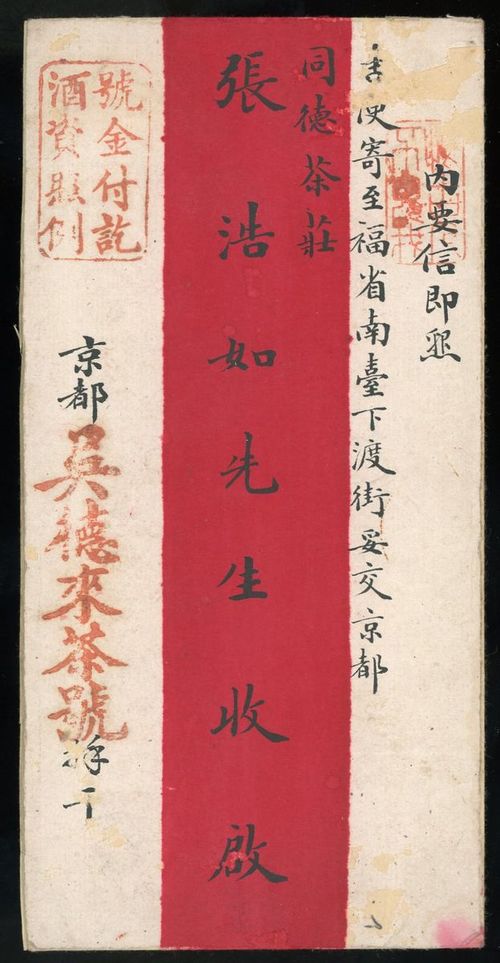 內要信即懇
便寄至福省南臺下渡街妥交京都
同德茶莊
張浩如先生收啟
號金付訖
酒資照例
京都吳德來茶號